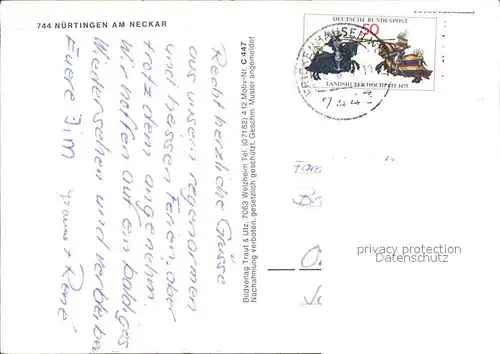 744 NÜRTINGEN AM NECKAR
Recht herzliche Grüsse
aus unsern regenarmen
und heissen Ferien, aber
trotzdem angenehm.
Wir hoffen auf ein baldiges
Wiedersehen und verbleiben
Euere Jim
René
Bildverlag Traut & Utz, 7063 Welzheim Tel. (07182) 412 Motiv-Nr. C 447
Nachahmung verboten, gesetzlich geschützt, Geschm. Muster angemeldet
DEUTSCHE BUNDESPOST
50
LANDSHUTER HOCHZEIT 1475
FRICKENHAUSEN
7443
Fam
privacy protection
Datenschutz